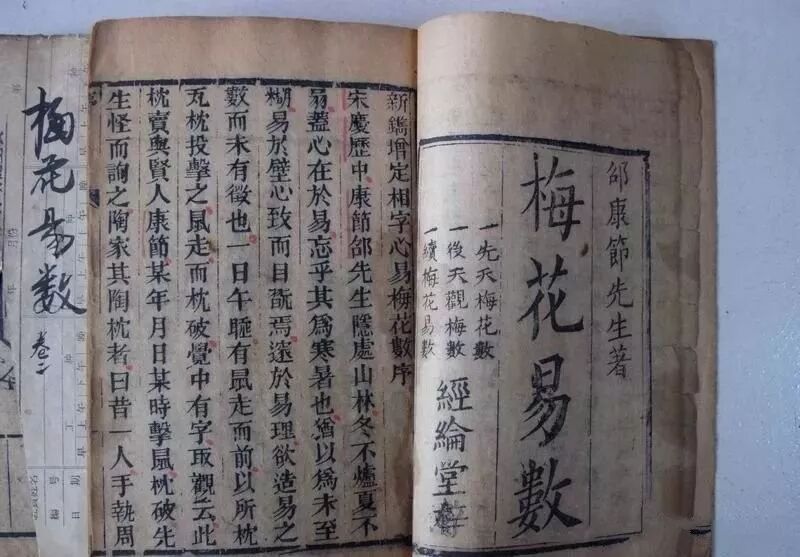 邵康節先生著
梅花易數
一先天梅花數
一後天觀梅數
一續梅花易數
經綸堂
新鐫增定相字心易梅花數序
宋慶歷中康節邵先生隱處山林冬不爐夏不
扇蓋心在於易忘乎其爲寒暑也猶以爲未至
糊易於壁心致而目翫焉邃於易理欲造易之
數而未有徵也一日午睡有鼠走而前以所枕
瓦枕投擊之鼠走而枕破覺中有字取觀云此
枕賣與賢人康節某年月日某時擊鼠枕破先
生怪而詢之陶家其陶枕者曰昔一人手執周
梅花易数 卷二